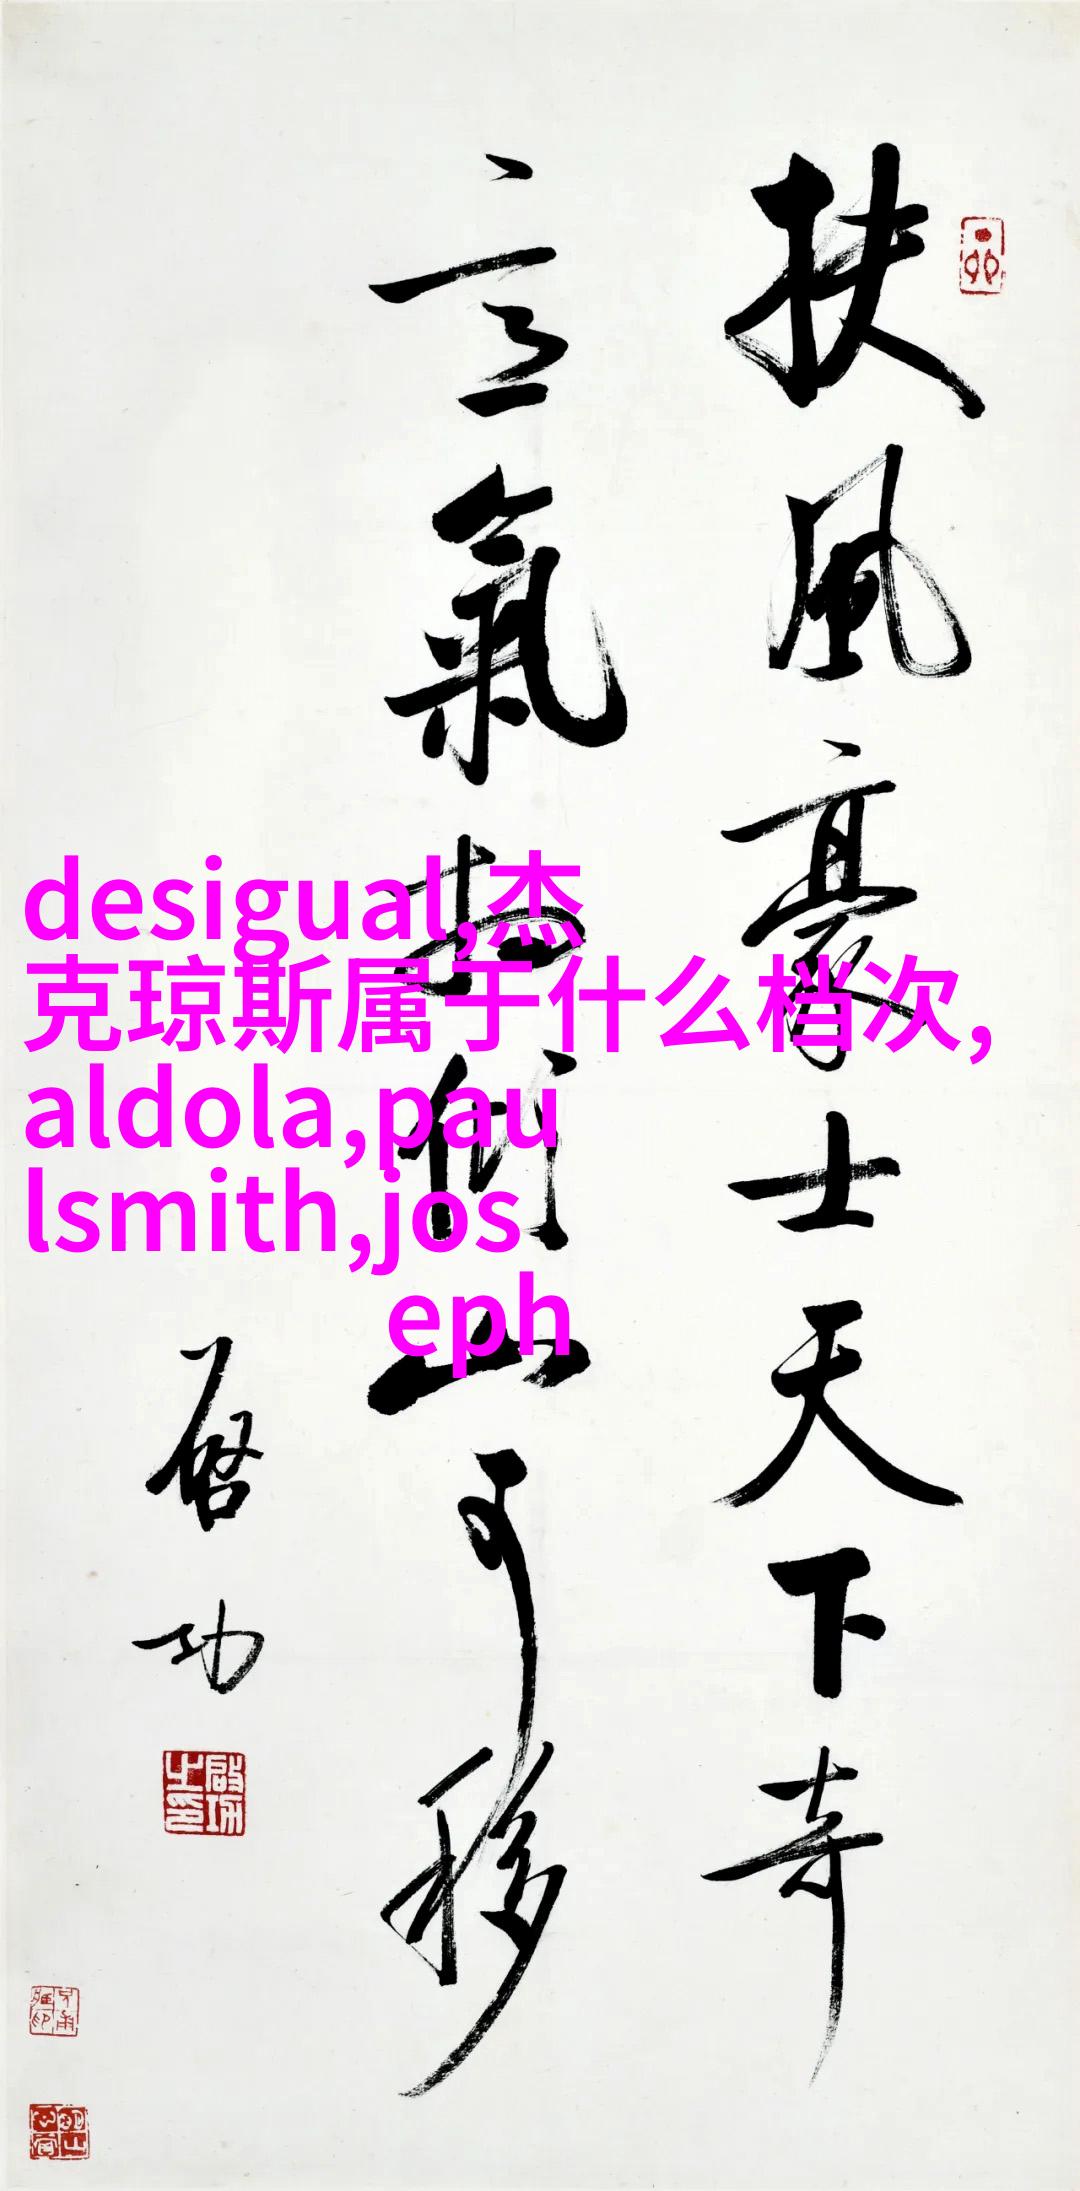 扶風豪士天下奇
意氣相傾山可移
啓功
啟功之印
desigual,杰
克琼斯属于什么档次,
aldola,pau
lsmith,jos
eph